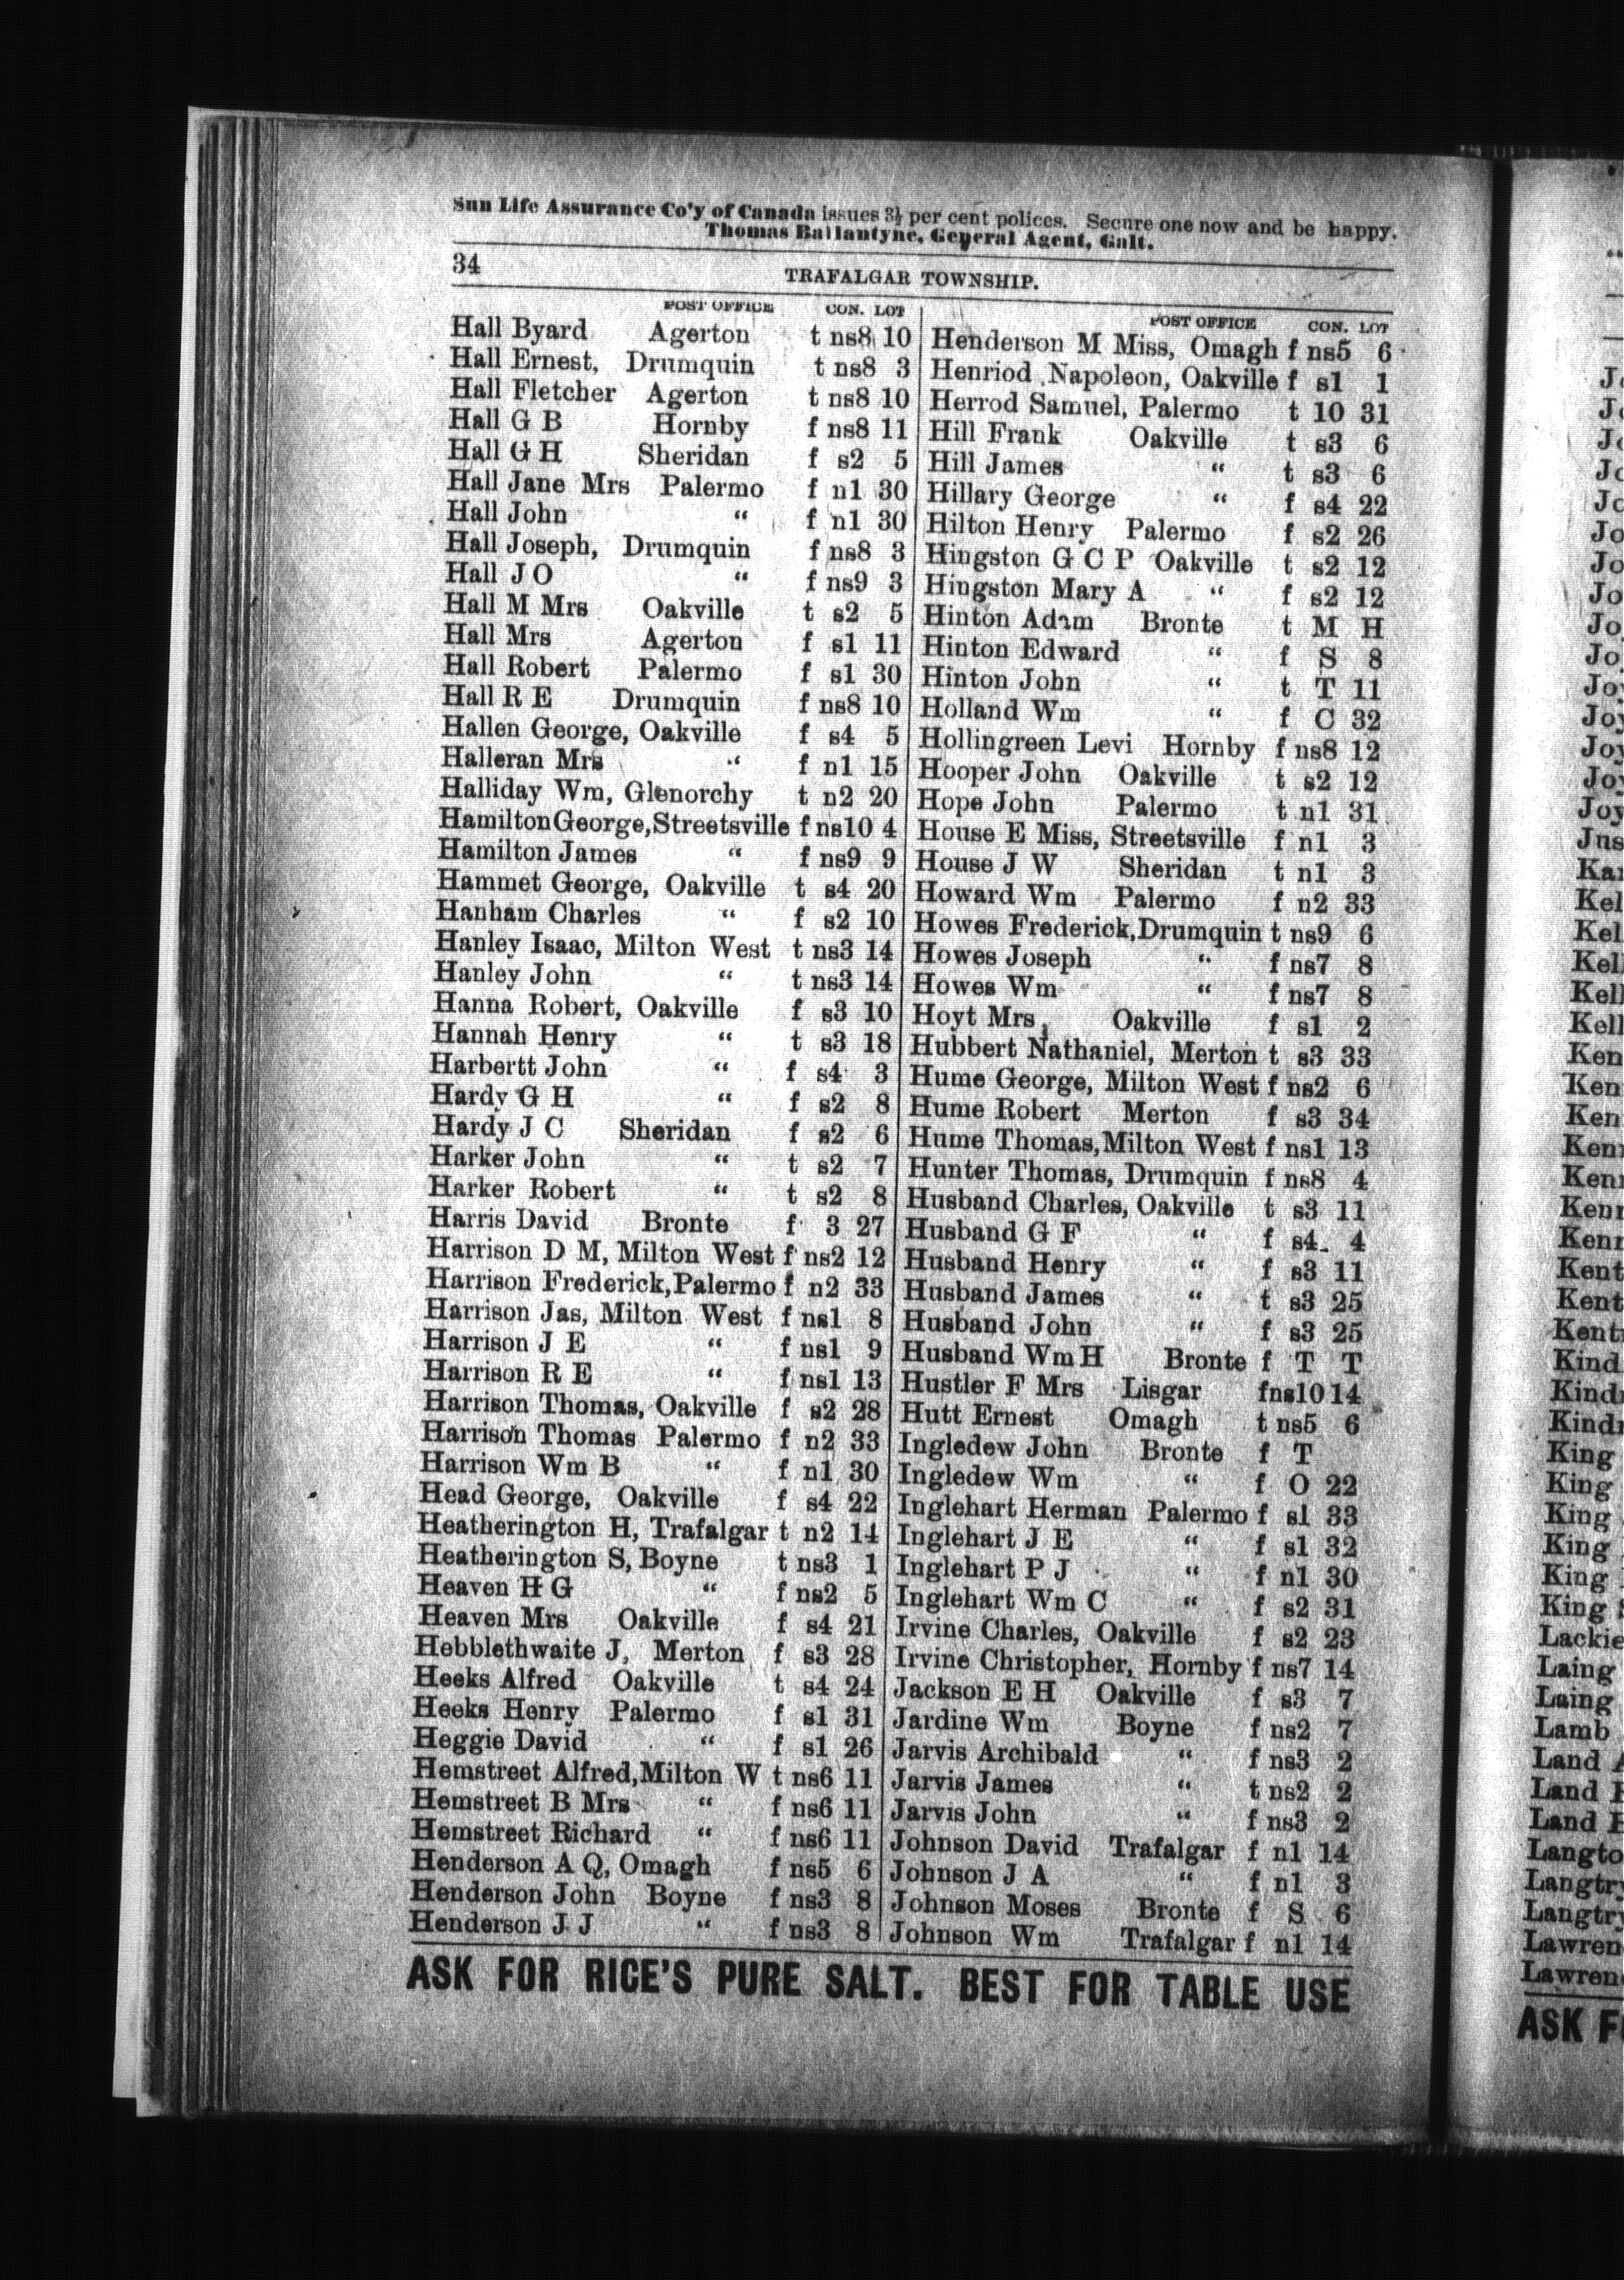 Sun Life Assurance Co'y of Canada issues 3½ per cent polices. Secure one now and be happy.
Thomas Ballantyne, General Agent, Galt.
34
TRAFALGAR TOWNSHIP.
POST OFFICE CON. LOT
Hall Byard Agerton t ns8 10
Hall Ernest, Drumquin t ns8 3
Hall Fletcher Agerton t ns8 10
Hall G B Hornby f ns8 11
Hall G H Sheridan f s2 5
Hall Jane Mrs Palermo f n1 30
Hall John " f n1 30
Hall Joseph, Drumquin f ns8 3
Hall J O " f ns9 3
Hall M Mrs Oakville t s2 5
Hall Mrs Agerton f s1 11
Hall Robert Palermo f s1 30
Hall R E Drumquin f ns8 10
Hallen George, Oakville f s4 5
Halleran Mrs " f n1 15
Halliday Wm, Glenorchy t n2 20
Hamilton George, Streetsville f ns10 4
Hamilton James " f ns9 9
Hammet George, Oakville t s4 20
Hanham Charles " f s2 10
Hanley Isaac, Milton West t ns3 14
Hanley John " t ns3 14
Hanna Robert, Oakville f s3 10
Hannah Henry " t s3 18
Harbertt John " f s4 3
Hardy G H " f s2 8
Hardy J C Sheridan f s2 6
Harker John " t s2 7
Harker Robert " t s2 8
Harris David Bronte f 3 27
Harrison D M, Milton West f ns2 12
Harrison Frederick, Palermo f n2 33
Harrison Jas, Milton West f ns1 8
Harrison J E " f ns1 9
Harrison R E " f ns1 13
Harrison Thomas, Oakville f s2 28
Harrison Thomas Palermo f n2 33
Harrison Wm B " f n1 30
Head George, Oakville f s4 22
Heatherington H, Trafalgar t n2 14
Heatherington S, Boyne t ns3 1
Heaven H G " f ns2 5
Heaven Mrs Oakville f s4 21
Hebblethwaite J, Merton f s3 28
Heeks Alfred Oakville t s4 24
Heeks Henry Palermo f s1 31
Heggie David " f s1 26
Hemstreet Alfred, Milton W t ns6 11
Hemstreet B Mrs " f ns6 11
Hemstreet Richard " f ns6 11
Henderson A Q, Omagh f ns5 6
Henderson John Boyne f ns3 8
Henderson J J " f ns3 8
POST OFFICE CON. LOT
Henderson M Miss, Omagh f ns5 6
Henriod Napoleon, Oakville f s1 1
Herrod Samuel, Palermo t 10 31
Hill Frank Oakville t s3 6
Hill James " t s3 6
Hillary George " f s4 22
Hilton Henry Palermo f s2 26
Hingston G C P Oakville t s2 12
Hingston Mary A " f s2 12
Hinton Adam Bronte t M H
Hinton Edward " f S 8
Hinton John " t T 11
Holland Wm " f C 32
Hollingreen Levi Hornby f ns8 12
Hooper John Oakville t s2 12
Hope John Palermo t n1 31
House E Miss, Streetsville f n1 3
House J W Sheridan t n1 3
Howard Wm Palermo f n2 33
Howes Frederick, Drumquin t ns9 6
Howes Joseph " f ns7 8
Howes Wm " f ns7 8
Hoyt Mrs Oakville f s1 2
Hubbert Nathaniel, Merton t s3 33
Hume George, Milton West f ns2 6
Hume Robert Merton f s3 34
Hume Thomas, Milton West f ns1 13
Hunter Thomas, Drumquin f ns8 4
Husband Charles, Oakville t s3 11
Husband G F " f s4 4
Husband Henry " f s3 11
Husband James " t s3 25
Husband John " f s3 25
Husband Wm H Bronte f T T
Hustler F Mrs Lisgar f ns10 14
Hutt Ernest Omagh t ns5 6
Ingledew John Bronte f T
Ingledew Wm " f O 22
Inglehart Herman Palermo f s1 33
Inglehart J E " f s1 32
Inglehart P J " f n1 30
Inglehart Wm C " f s2 31
Irvine Charles, Oakville f s2 23
Irvine Christopher, Hornby f ns7 14
Jackson E H Oakville f s3 7
Jardine Wm Boyne f ns2 7
Jarvis Archibald " f ns3 2
Jarvis James " t ns2 2
Jarvis John " f ns3 2
Johnson David Trafalgar f n1 14
Johnson J A " f n1 3
Johnson Moses Bronte f S 6
Johnson Wm Trafalgar f n1 14
ASK FOR RICE'S PURE SALT. BEST FOR TABLE USE
King
King
King
King
King
King
Lackie
Laing
Laing
Lamb
Land
Land
Land
ASK